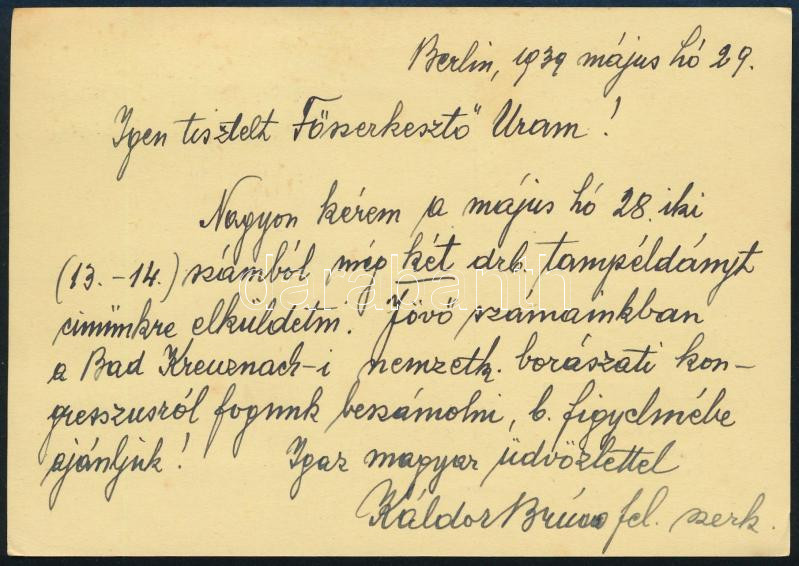 Berlin, 1939 május hó 29.
Igen tisztelt Főszerkesztő Uram!
Nagyon kérem a május hó 28. iki
(13.-14.) számból még két drb. tampéldányt
cimünkre elküldetni. Jövő számainkban
a Bad Kreuznach-i nemzetk. borászati kon-
gresszusról fogunk beszámolni, b. figyelmébe
ajánljuk! Igaz magyar üdvözlettel
Káldor Brúno fel. szerk.
darabanth